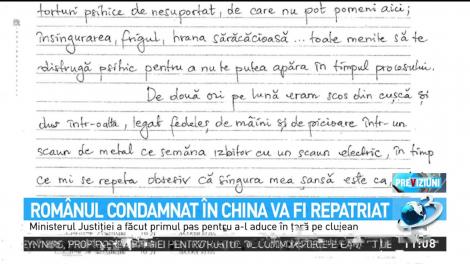 torturi psihice de nesuportat, de care nu pot pomeni aici;
însingurarea, frigul, hrana sărăcăcioasă ... toate menite să te
distrugă psihic pentru a nu te putea apăra în timpul procesului.
De două ori pe lună eram scos din cușcă și
dus într-o alta, legat fedeleș de mâini și de picioare într-un
scaun de metal ce semăna izbitor cu un scaun electric, în timp
ce mi se repeta obsesiv că singura mea șansă este ca,
PREVIZIUNI
ROMÂNUL CONDAMNAT ÎN CHINA VA FI REPATRIAT
Ministerul Justiţiei a făcut primul pas pentru a-l aduce în ţară pe clujean
11:08